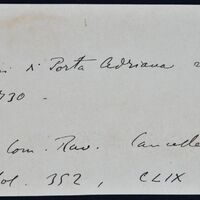 di Porta Adriana
1730 -
Com. Rav. Cancelle
Vol. 352, CLIX